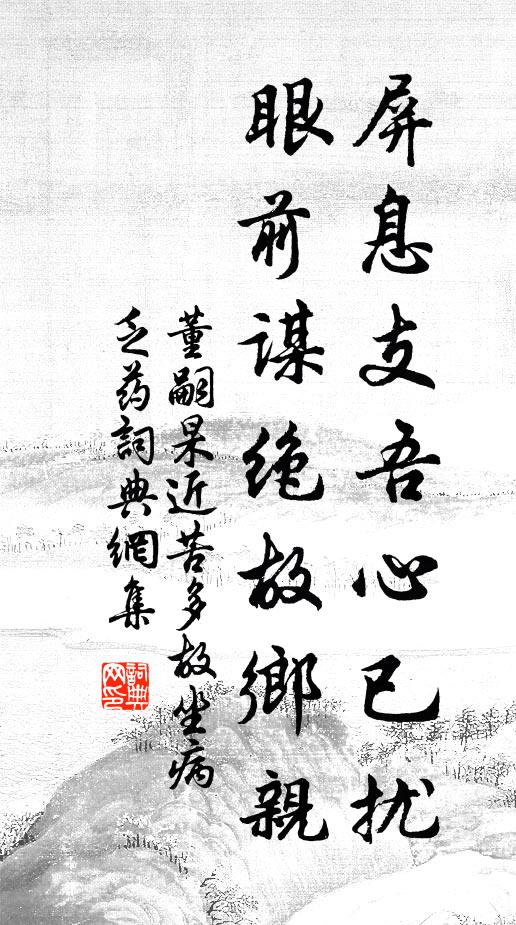 屏息支吾心已扰
眼前谋绝故鄉親
董嗣杲近苦多故坐病
乏药詞典網集
詞典网印